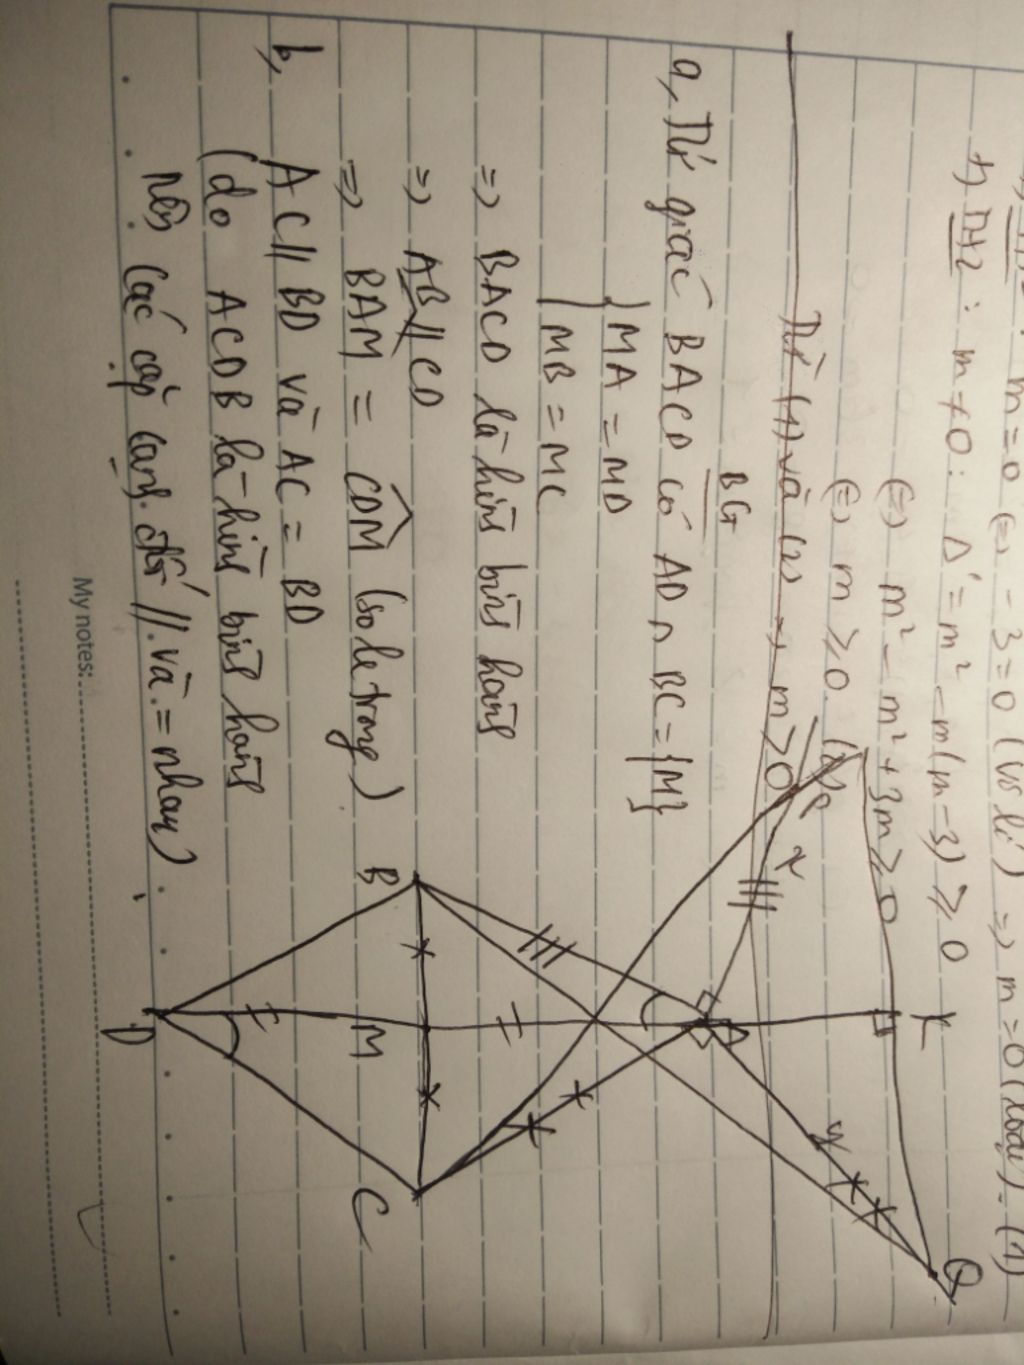 m=0 (=) -3=0 (vô lí) => m=0 (loại). (1)
+, TH2: m≠0: Δ'=m²-m(m-3)≥0
(=) m²-m²+3m≥0
(=) m≥0. (2)
Từ (1) và (2) => m>0
BG
a, Tứ giác BACD có AD∩BC={M}
{MA=MD
{MB=MC
=> BACD là hình bình hành
=> AB//CD
=> BAM = CDM (so le trong)
b, AC//BD và AC=BD
(do ACDB là hình bình hành
nên các cặp cạnh đối // và = nhau).
P
x
K
A
y
Q
B
M
C
D
My notes: